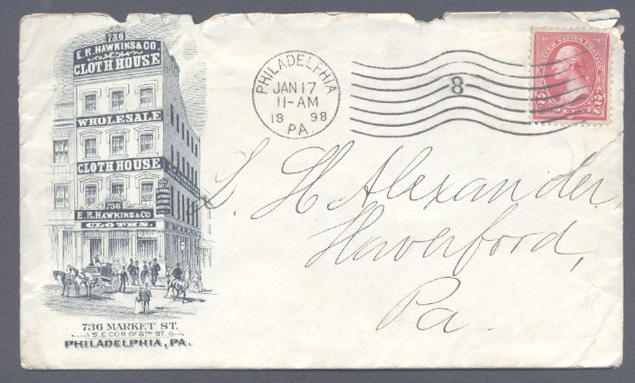 736
E. R. HAWKINS & CO
CLOTH HOUSE
WHOLESALE
CLOTH HOUSE
E. R. HAWKINS & CO
CLOTHS.
736 MARKET ST.
S.E. COR. OF 8TH ST.
PHILADELPHIA, PA.
PHILADELPHIA
JAN 17
11-AM
18 98
PA.
8
L. H. Alexander,
Haverford,
Pa.